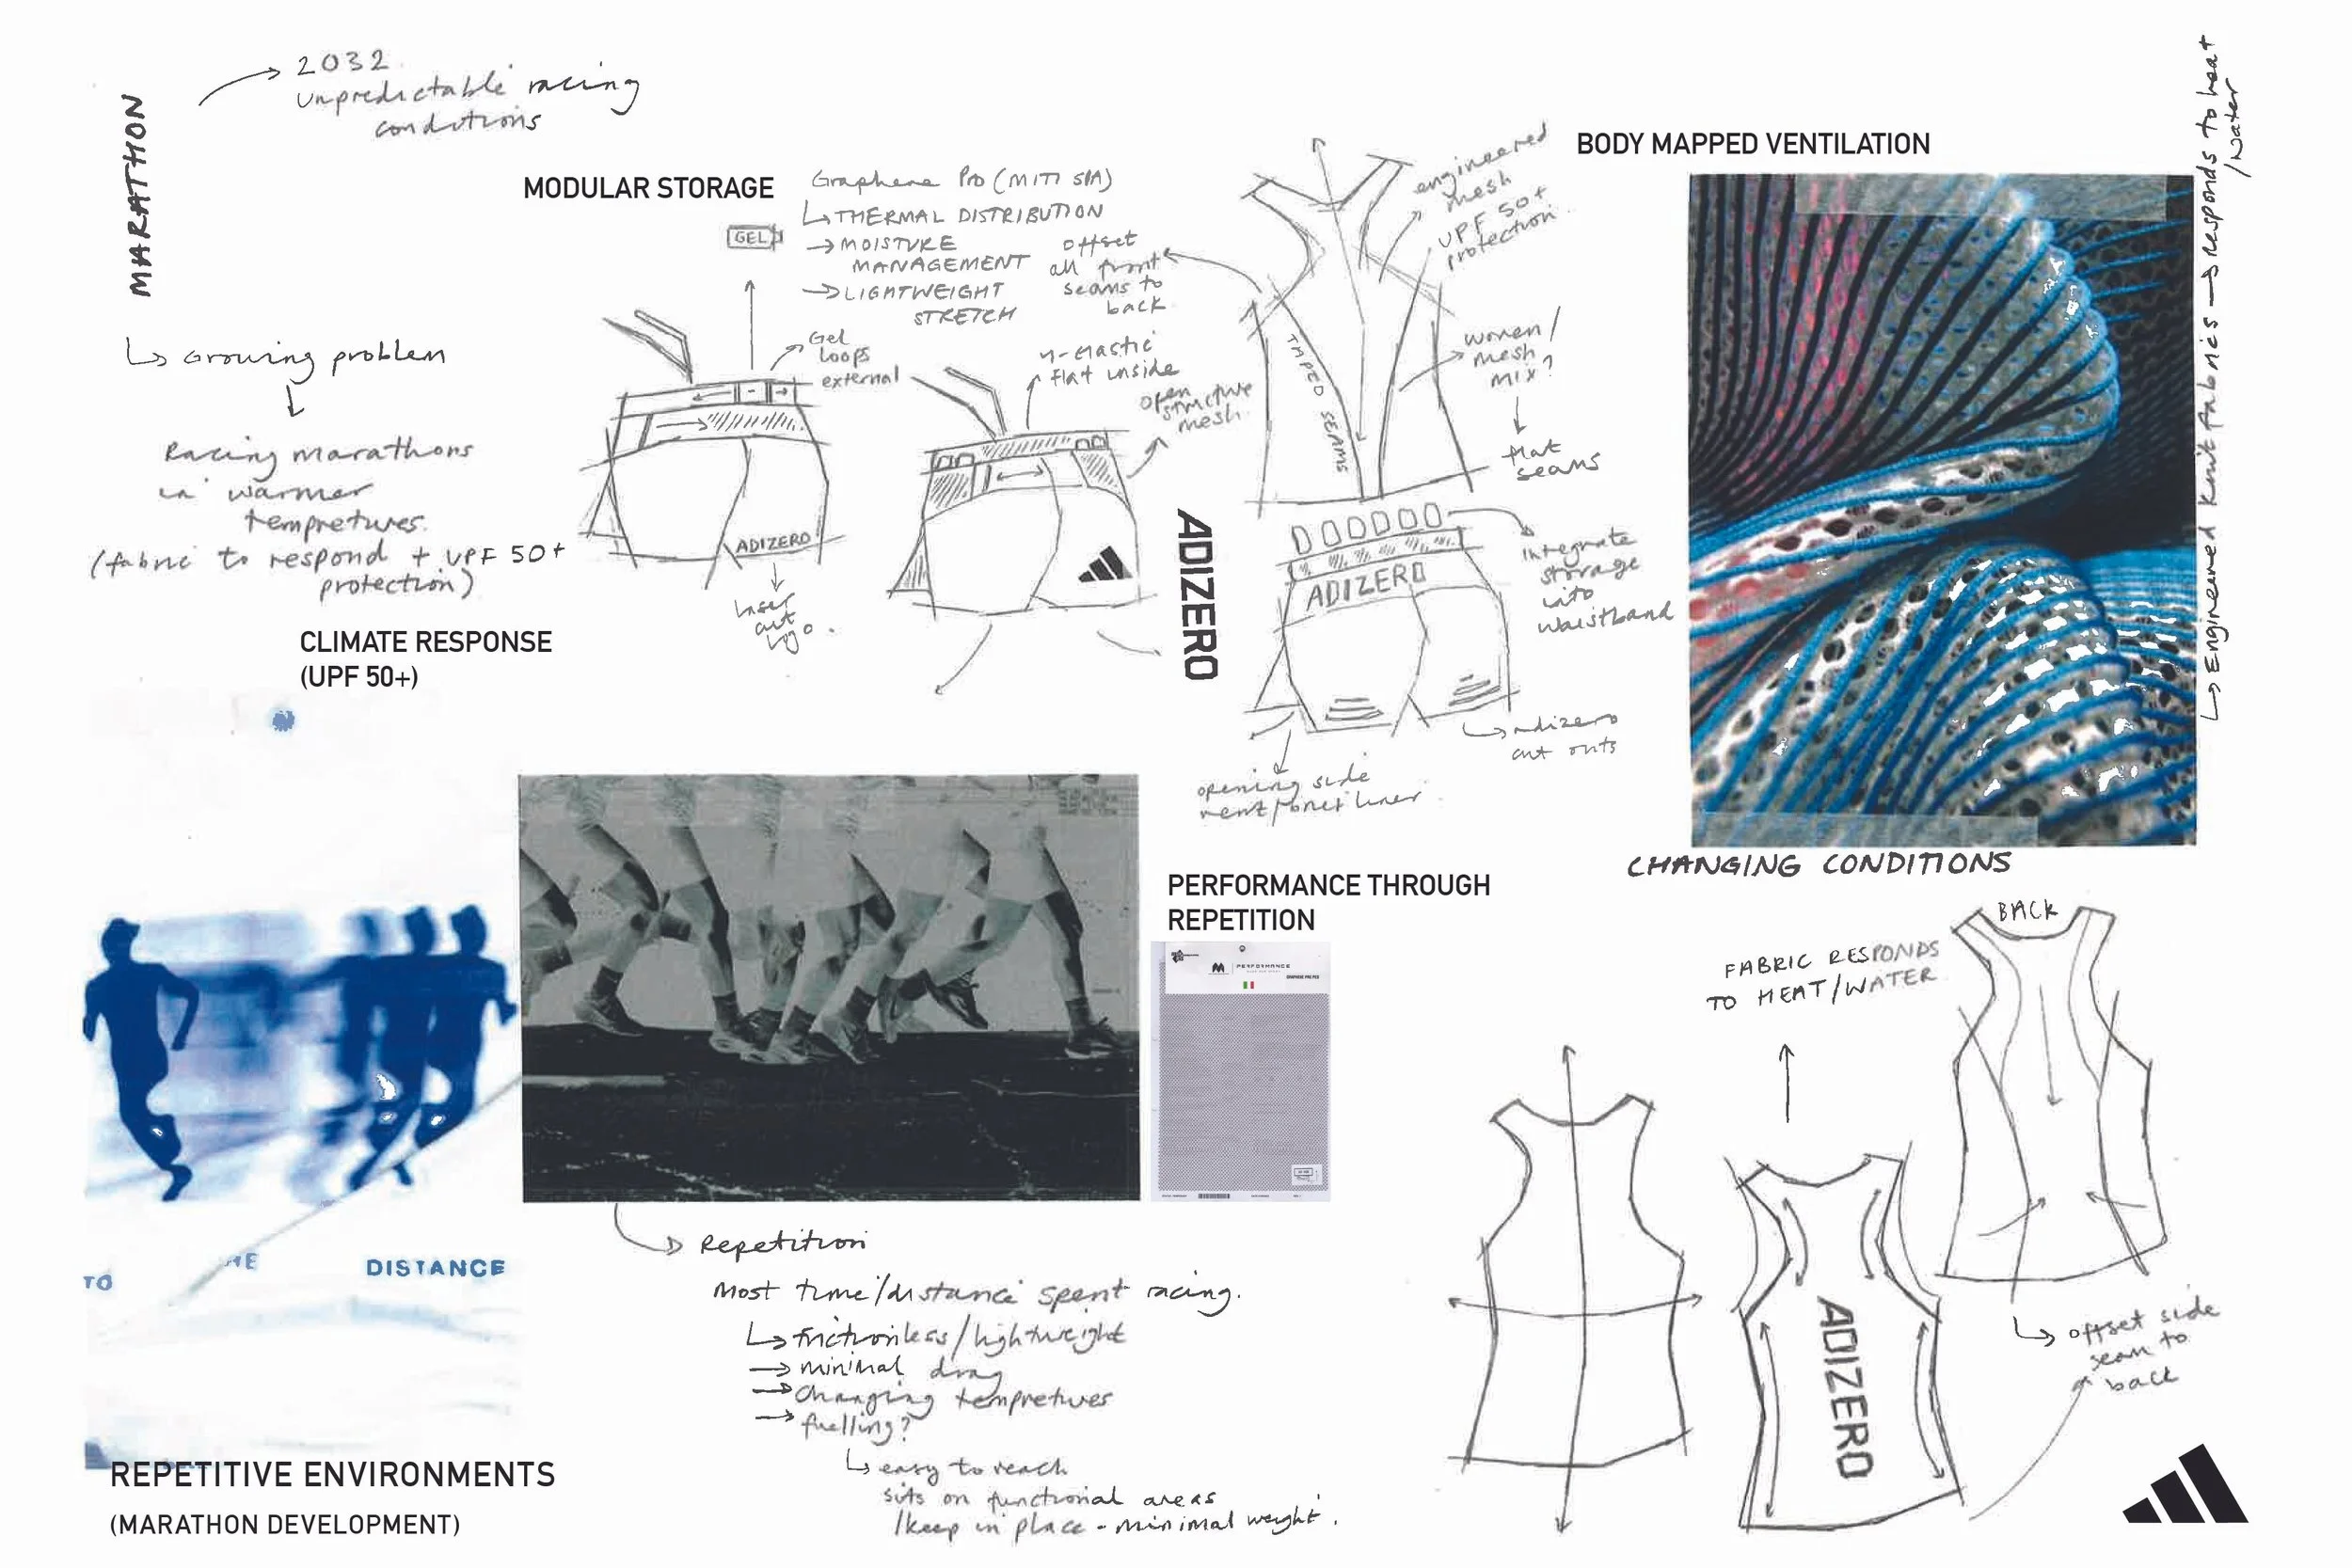 MARATHON
2032
unpredictable racing
conditions
↳ Growing problem
Racing marathons
in warmer
tempretures.
(fabric to respond + UPF 50+
protection)
CLIMATE RESPONSE
(UPF 50+)
MODULAR STORAGE
GEL
Graphene Pro (MITI SPA)
↳ THERMAL DISTRIBUTION
→ MOISTURE
MANAGEMENT
→ LIGHTWEIGHT
STRETCH
offset
all front
seams to
back
Gel
loops
external
ADIZERO
laser
cut
logo.
elastic
flat inside
open
structure
mesh.
engineered
mesh
UPF 50+
protection.
TAPED SEAMS
women/
mesh
mix?
flat
seams
ADIZERO
ADIZERO
integrate
storage
into
waistband
adizero
cut outs
opening side
vent/
liner.
BODY MAPPED VENTILATION
↳ Engineered knit fabrics → responds to heat
/water
CHANGING CONDITIONS
PERFORMANCE THROUGH
REPETITION
PERFORMANCE
FABRIC RESPONDS
TO HEAT/WATER
BACK
ADIZERO
↳ offset side
seam to
back
TO
DISTANCE
REPETITIVE ENVIRONMENTS
(MARATHON DEVELOPMENT)
Repetition
Most time/distance spent racing.
↳ frictionless/lightweight
→ minimal drag
→ changing tempretures
→ fuelling?
↳ easy to reach
sits on functional areas
/keep in place - minimal weight.